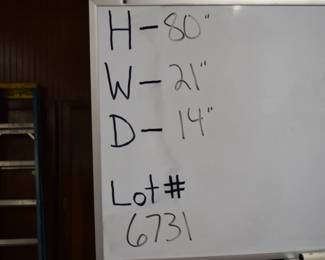 H-80"
W-21"
D-14"
Lot#
6731